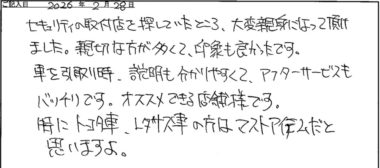 記入日 2026年 2月 28日
セキュリティの取付店を探していたところ、大変親身になって頂け
ました。親切な方が多くて、印象も良かったです。
車を引取り時、説明も分かりやすくて、アフターサービスも
バッチリです。オススメできる店舗様です。
特にトヨタ車、レクサス車の方はマスト
だと
思いますよ。